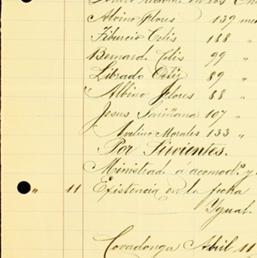 Albino Flores 139
Tiburcio Celis 188 "
Bernard. Celis 99 "
Librado Celis 89 "
Albino Flores 88 "
Jesus Sariñana 107 "
Avelino Morales 133 "
Por Sirvientes.
Ministrad. a acomod. y
" 11 Existencia en la fecha
Igual
Covadonga Abril 11